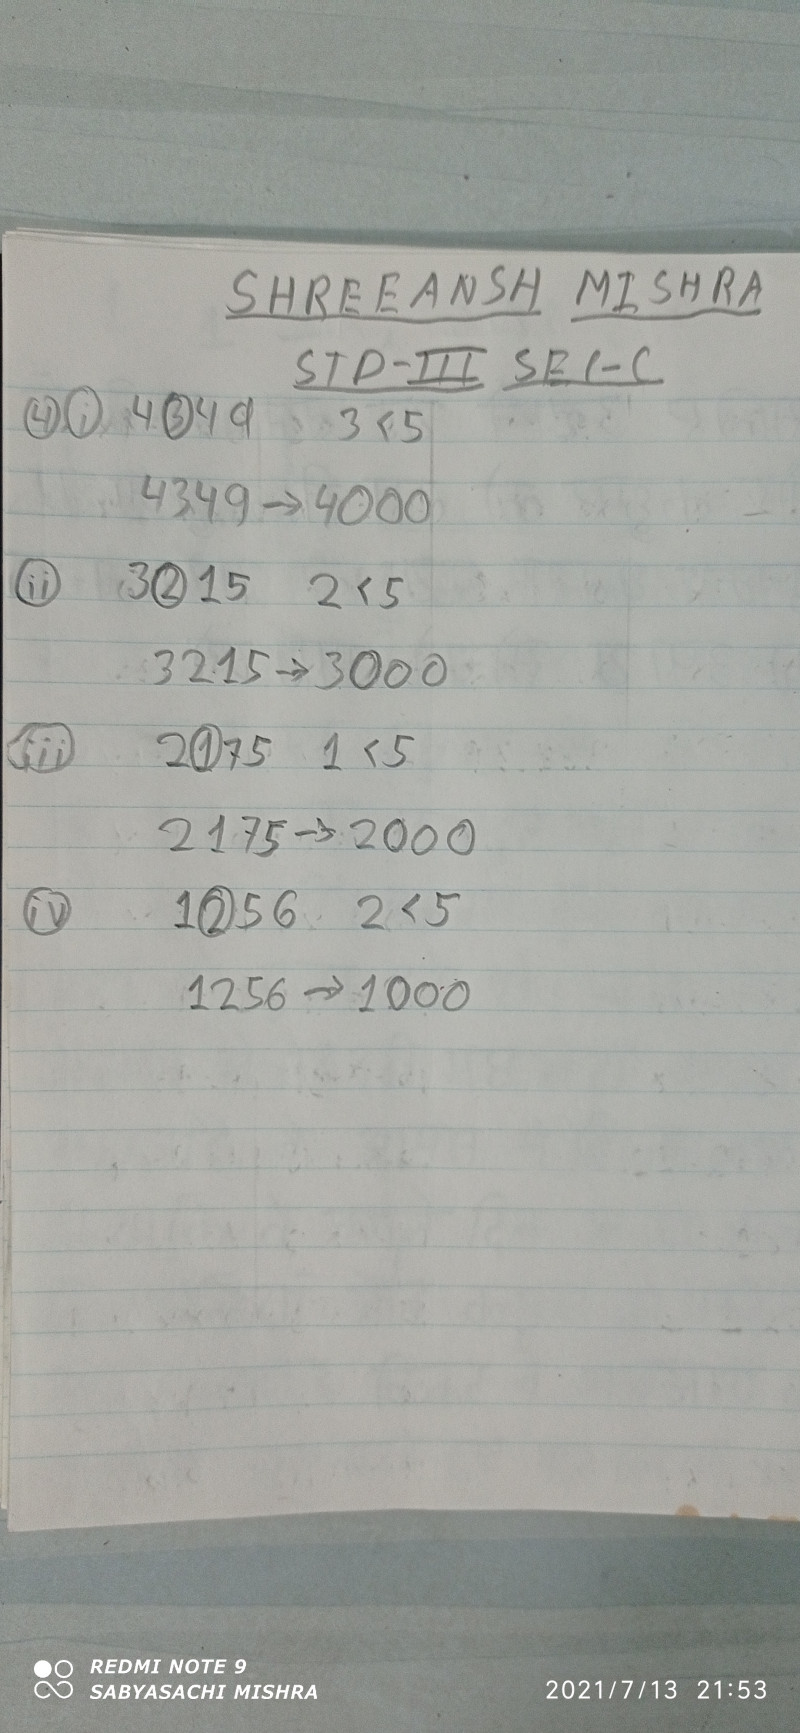 SHREEANSH MISHRA
STD-III SEC-C
4 i 4349 3<5
4349→4000
ii 3215 2<5
3215→3000
iii 2175 1<5
2175→2000
iv 1256 2<5
1256→1000
REDMI NOTE 9
SABYASACHI MISHRA
2021/7/13 21:53